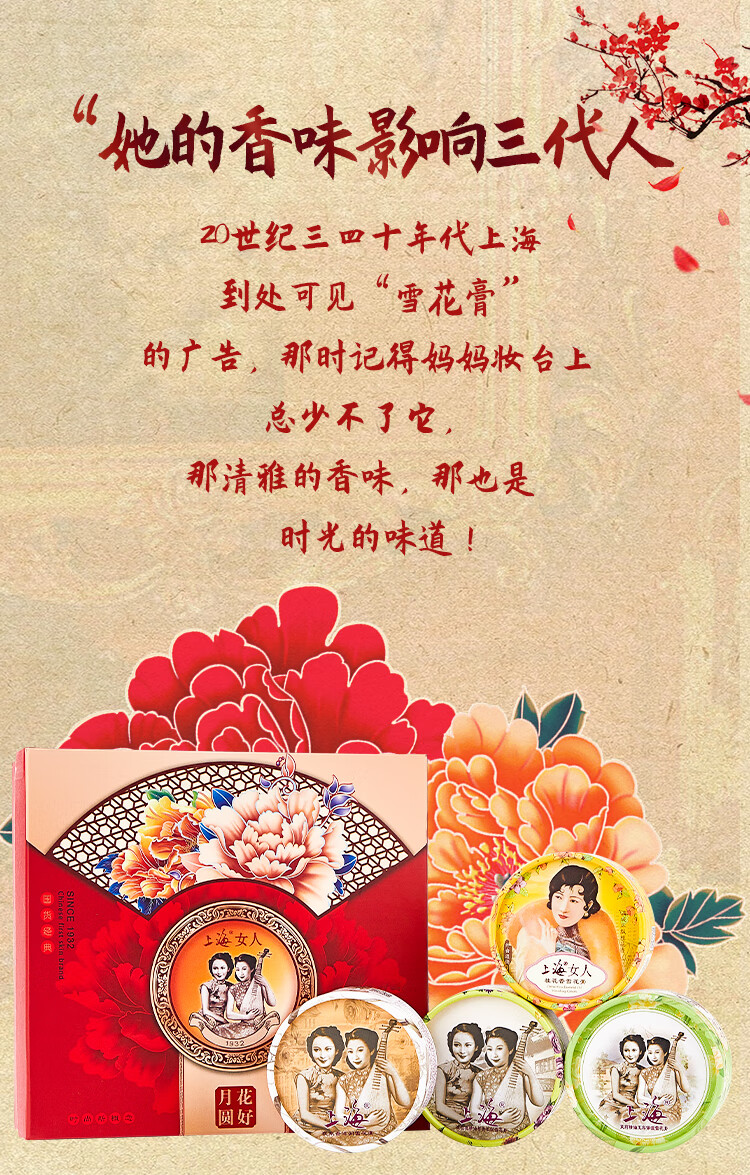 “她的香味影响三代人
20世纪三四十年代上海
到处可见“雪花膏”
的广告，那时记得妈妈妆台上
总少不了它，
那清雅的香味，那也是
时光的味道！
SINCE 1932
Chinese first skin brand
国货经典
上海女人
1932
花好
月圆
上海女人
桂花香雪花膏
上海
上海
上海